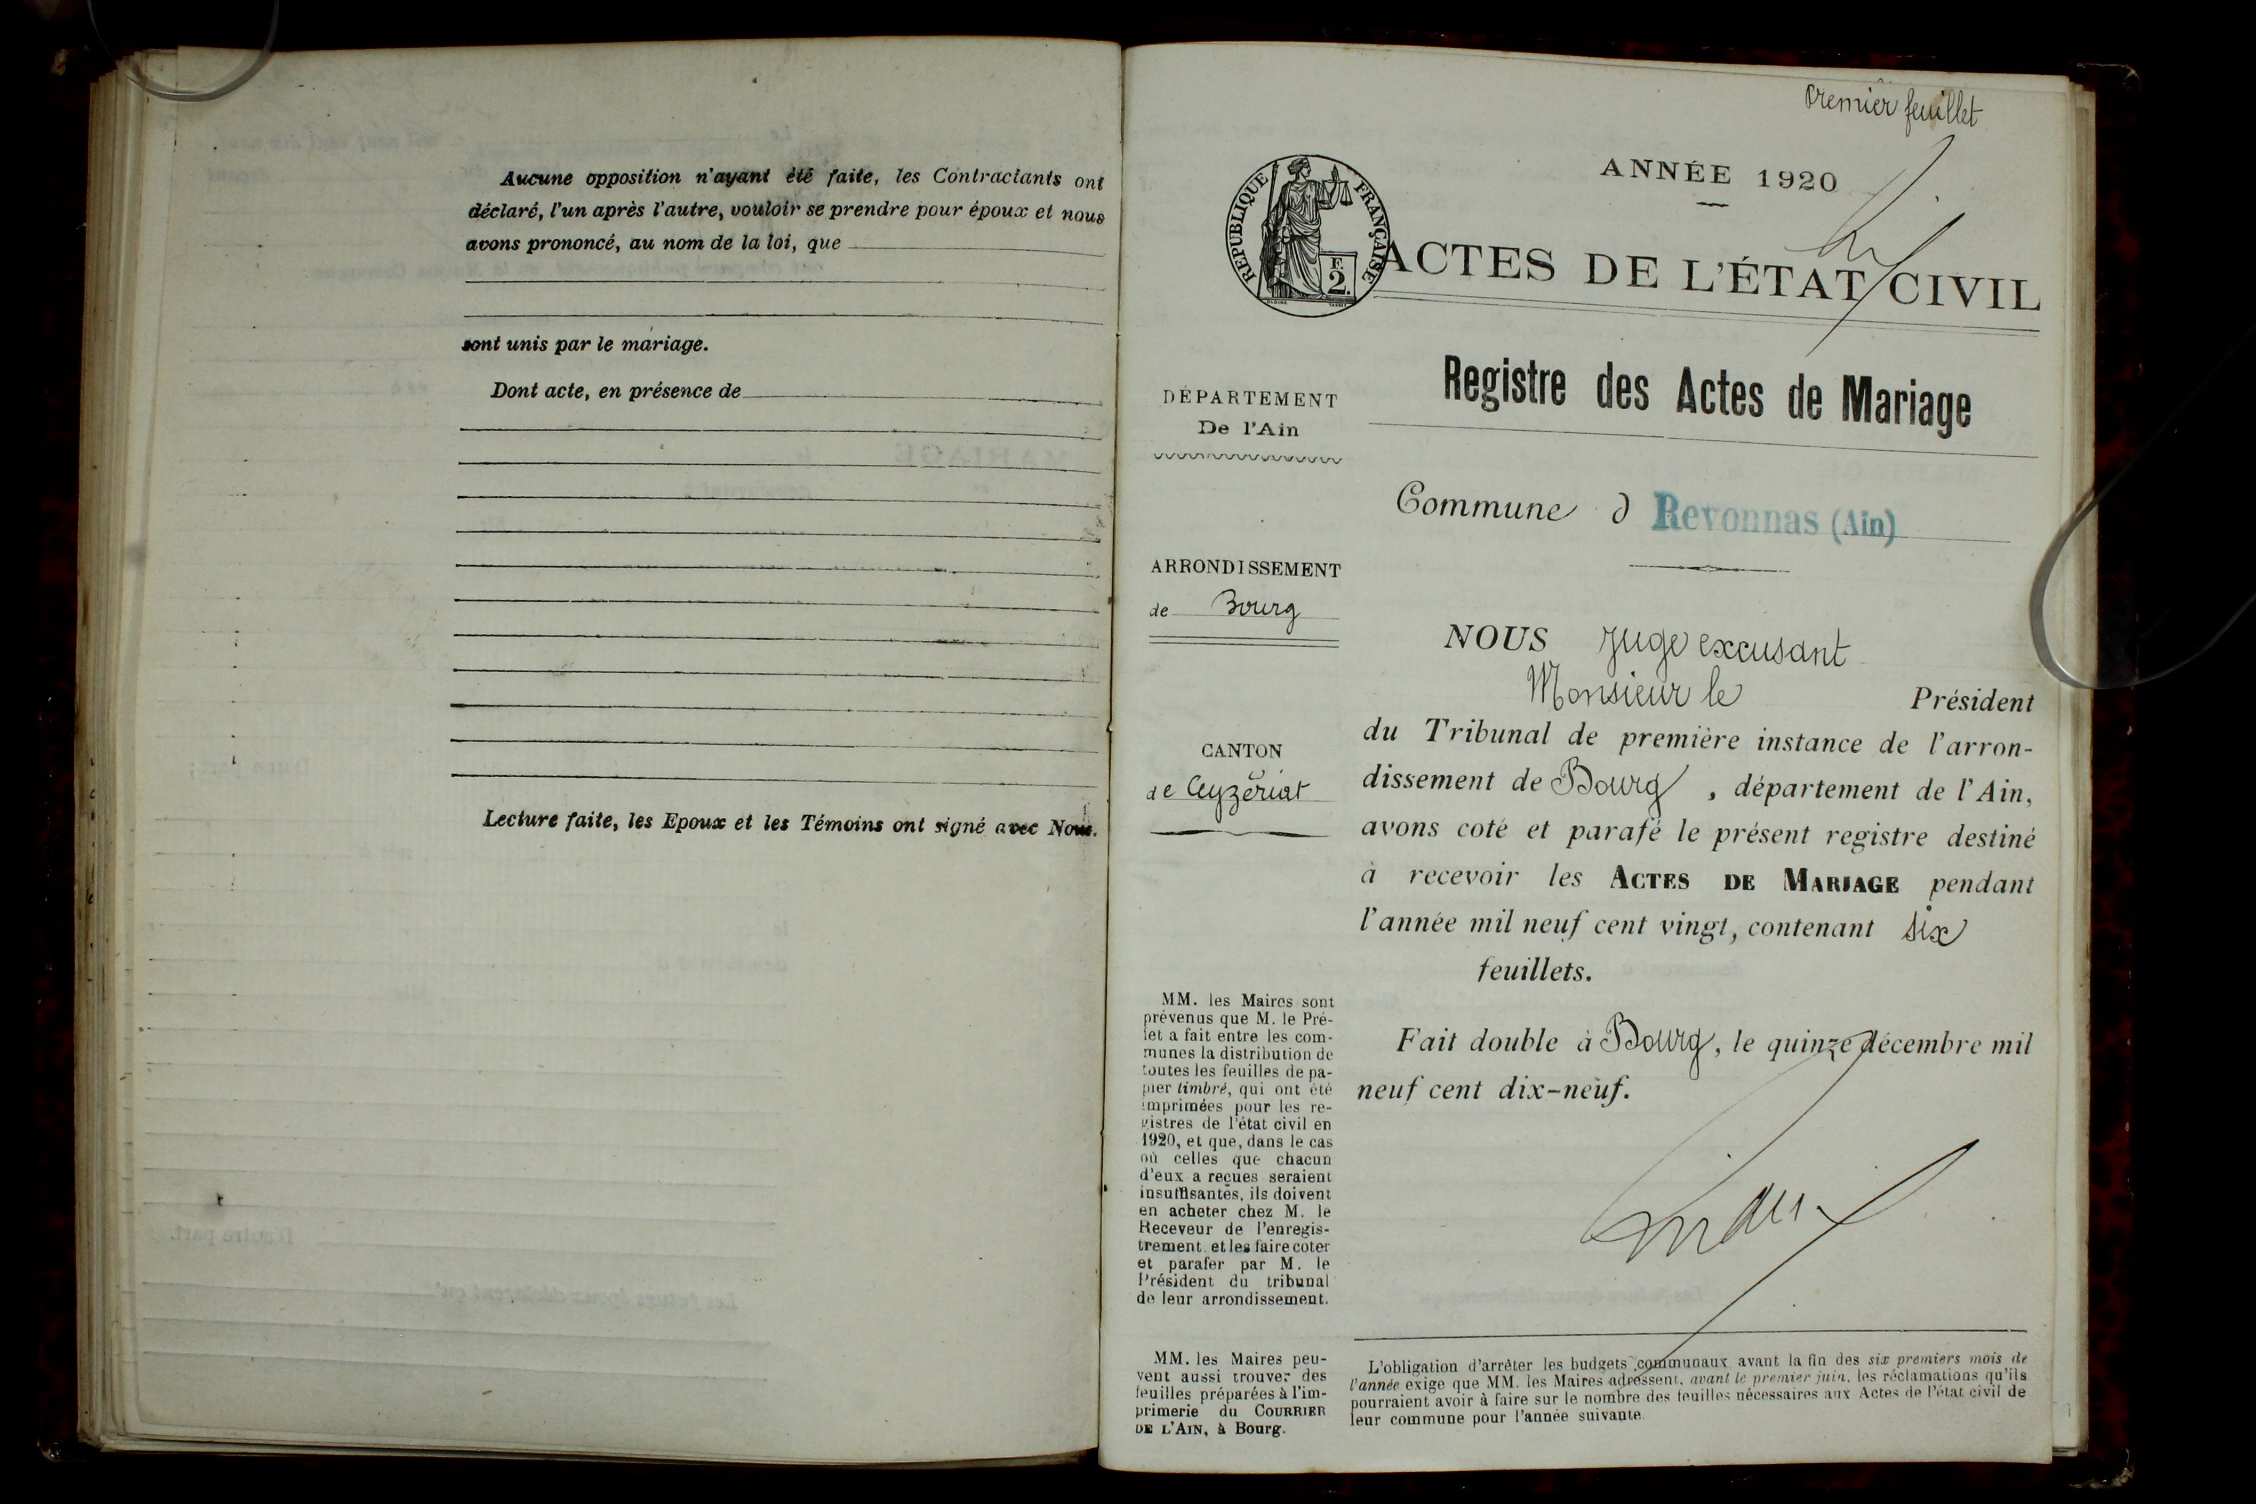 Aucune opposition n'ayant été faite, les Contractants ont
déclaré, l'un après l'autre, vouloir se prendre pour époux et nous
avons prononcé, au nom de la loi, que
sont unis par le mariage.
Dont acte, en présence de
Lecture faite, les Epoux et les Témoins ont signé avec Nous.
Premier feuillet
ANNÉE 1920
RÉPUBLIQUE FRANÇAISE
F.
2.
ACTES DE L'ÉTAT CIVIL
Registre des Actes de Mariage
DÉPARTEMENT
De l'Ain
Commune d Revonnas (Ain)
ARRONDISSEMENT
de Bourg
CANTON
de Ceyzériat
NOUS Juge excusant
Monsieur le Président
du Tribunal de première instance de l'arron-
dissement de Bourg, département de l'Ain,
avons coté et parafé le présent registre destiné
à recevoir les ACTES DE MARIAGE pendant
l'année mil neuf cent vingt, contenant six
feuillets.
Fait double à Bourg, le quinze décembre mil
neuf cent dix-neuf.
MM. les Maires sont
prévenus que M. le Pré-
fet a fait entre les com-
munes la distribution de
toutes les feuilles de pa-
pier timbré, qui ont été
imprimées pour les re-
gistres de l'état civil en
1920, et que, dans le cas
où celles que chacun
d'eux a reçues seraient
insuffisantes, ils doivent
en acheter chez M. le
Receveur de l'enregis-
trement et les faire coter
et parafer par M. le
Président du tribunal
de leur arrondissement.
MM. les Maires peu-
vent aussi trouver des
feuilles préparées à l'im-
primerie du COURRIER
DE L'AIN, à Bourg.
L'obligation d'arrêter les budgets communaux avant la fin des six premiers mois de
l'année exige que MM. les Maires adressent, avant le premier juin, les réclamations qu'ils
pourraient avoir à faire sur le nombre des feuilles nécessaires aux Actes de l'état civil de
leur commune pour l'année suivante.